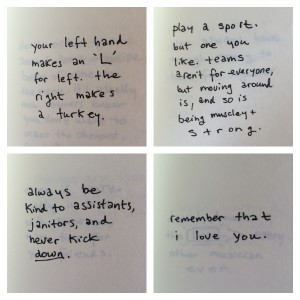 your left hand
makes an 'L'
for left. the
right makes
a turkey.
play a sport.
but one you
like. teams
aren't for everyone,
but moving around
is, and so is
being muscley +
strong.
always be
kind to assistants,
janitors, and
never kick
down.
remember that
i love you.